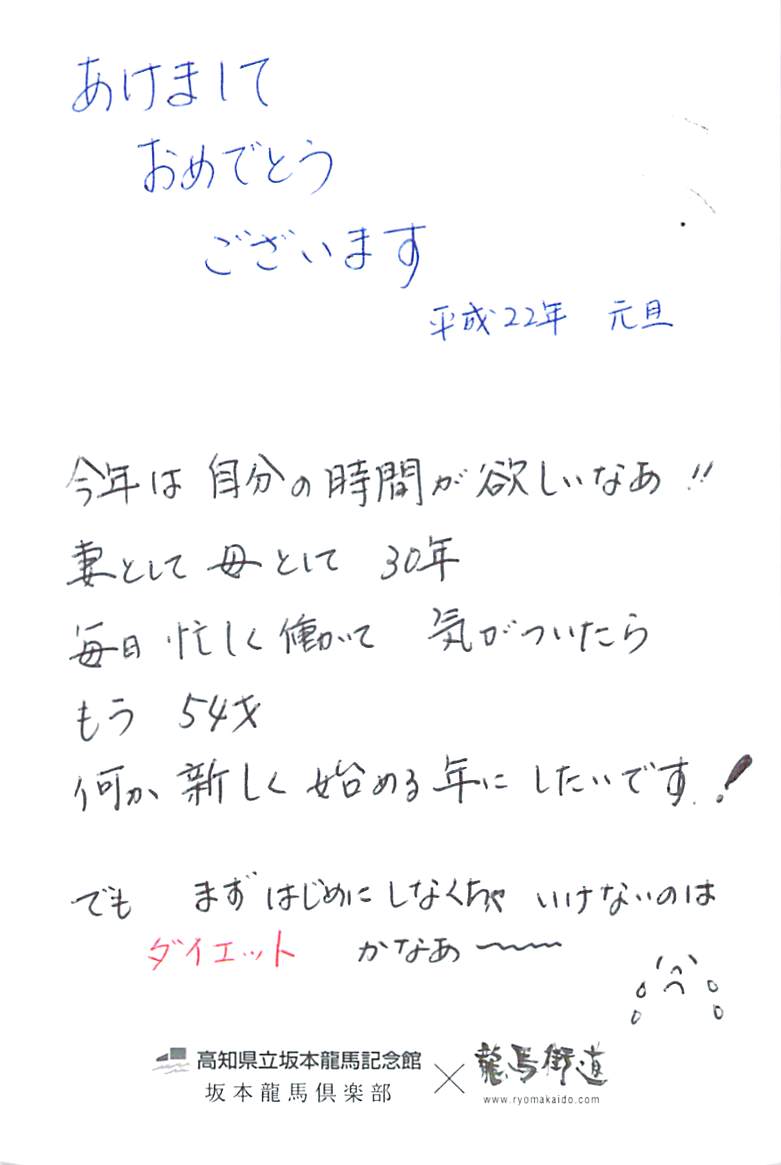 あけまして
おめでとう
ございます
平成22年 元旦
今年は 自分の時間が欲しいなあ!!
妻として 母として 30年
毎日 忙しく 働いて 気がついたら
もう 54才
何か 新しく 始める年に したいです!
でも まずはじめに しなくちゃ いけないのは
ダイエット かなあ〜〜〜
高知県立坂本龍馬記念館
坂本龍馬倶楽部
×
龍馬街道
www.ryomakaido.com